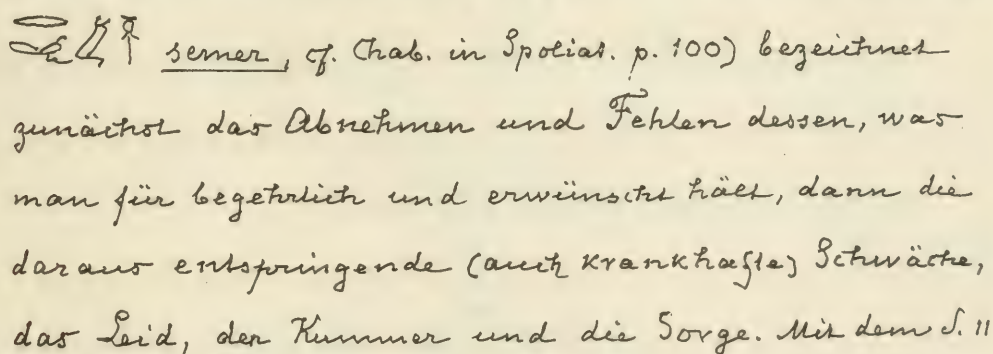 semer, cf. Chab. in Spolias. p. 100) bezeichnet
zunächst das Abnehmen und Fehlen dessen, was
man für begehrlich und erwünscht hält, dann die
daraus entspringende (auch krankhafte) Schwäche,
das Leid, der Kummer und die Sorge. Mit dem S. 11